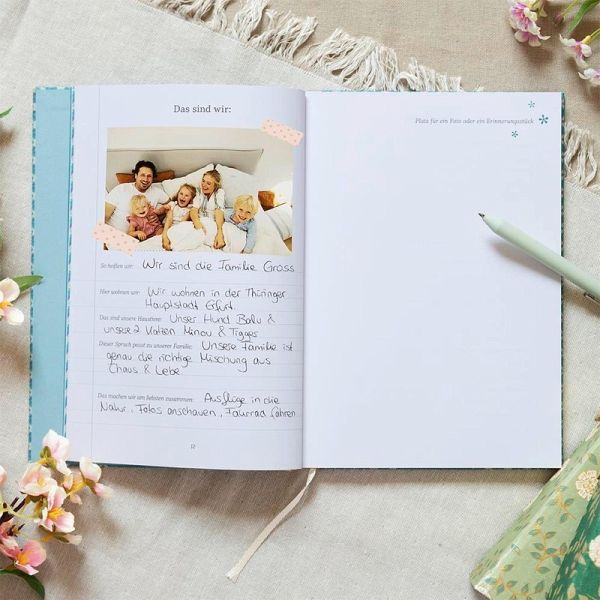 Das sind wir:
So heißen wir: Wir sind die Familie Gross
Hier wohnen wir: Wir wohnen in der Thüringer
Hauptstadt Erfurt.
Das sind unsere Haustiere: Unser Hund Balu &
unsere 2 Katzen Minou & Tigges
Dieser Spruch passt zu unserer Familie: Unsere Familie ist
genau die richtige Mischung aus
Chaos & Liebe
Das machen wir am liebsten zusammen: Ausflüge in die
Natur, Fotos anschauen, Fahrrad fahren
12
Platz für ein Foto oder ein Erinnerungsstück